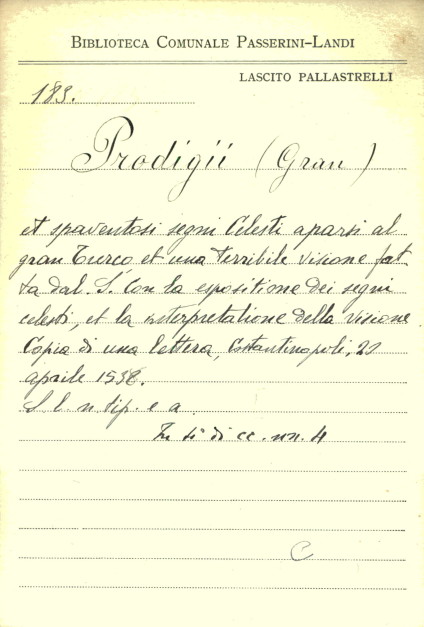 BIBLIOTECA COMUNALE PASSERINI-LANDI
LASCITO PALLASTRELLI
189.
Prodigii (Gran)
et spaventosi segni Celesti aparsi al
gran Turco et una terribile visione fat-
ta dal S. Con la espositione dei segni
celesti, et la interpretatione della visione
Copia di una lettera, Costantinopoli, 20
aprile 1538.
S. l. n. tip. e a.
In 4° di cc. nn. 4
C